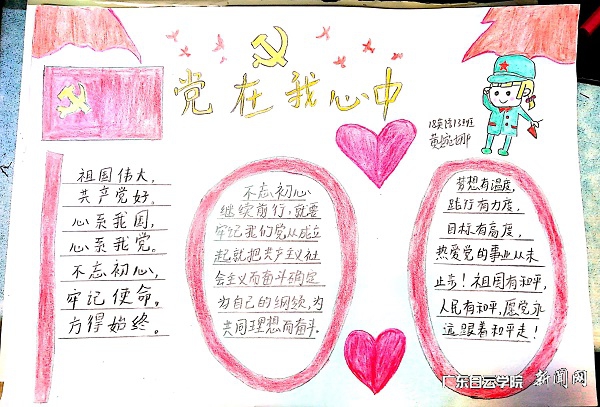 党在我心中
祖国伟大,
共产党好,
心系我国,
心系我党。
不忘初心,
牢记使命,
方得始终。
不忘初心
继续前行,就要
牢记我们党从成立
起就把共产主义社
会主义而奋斗确定
为自己的纲领,为
共同理想而奋斗。
梦想有温度,
践行有力度,
目标有高度,
热爱党的事业从未
止步!祖国有和平,
人民有和平,愿党永
远跟着和平走!
广东白云学院 新闻网